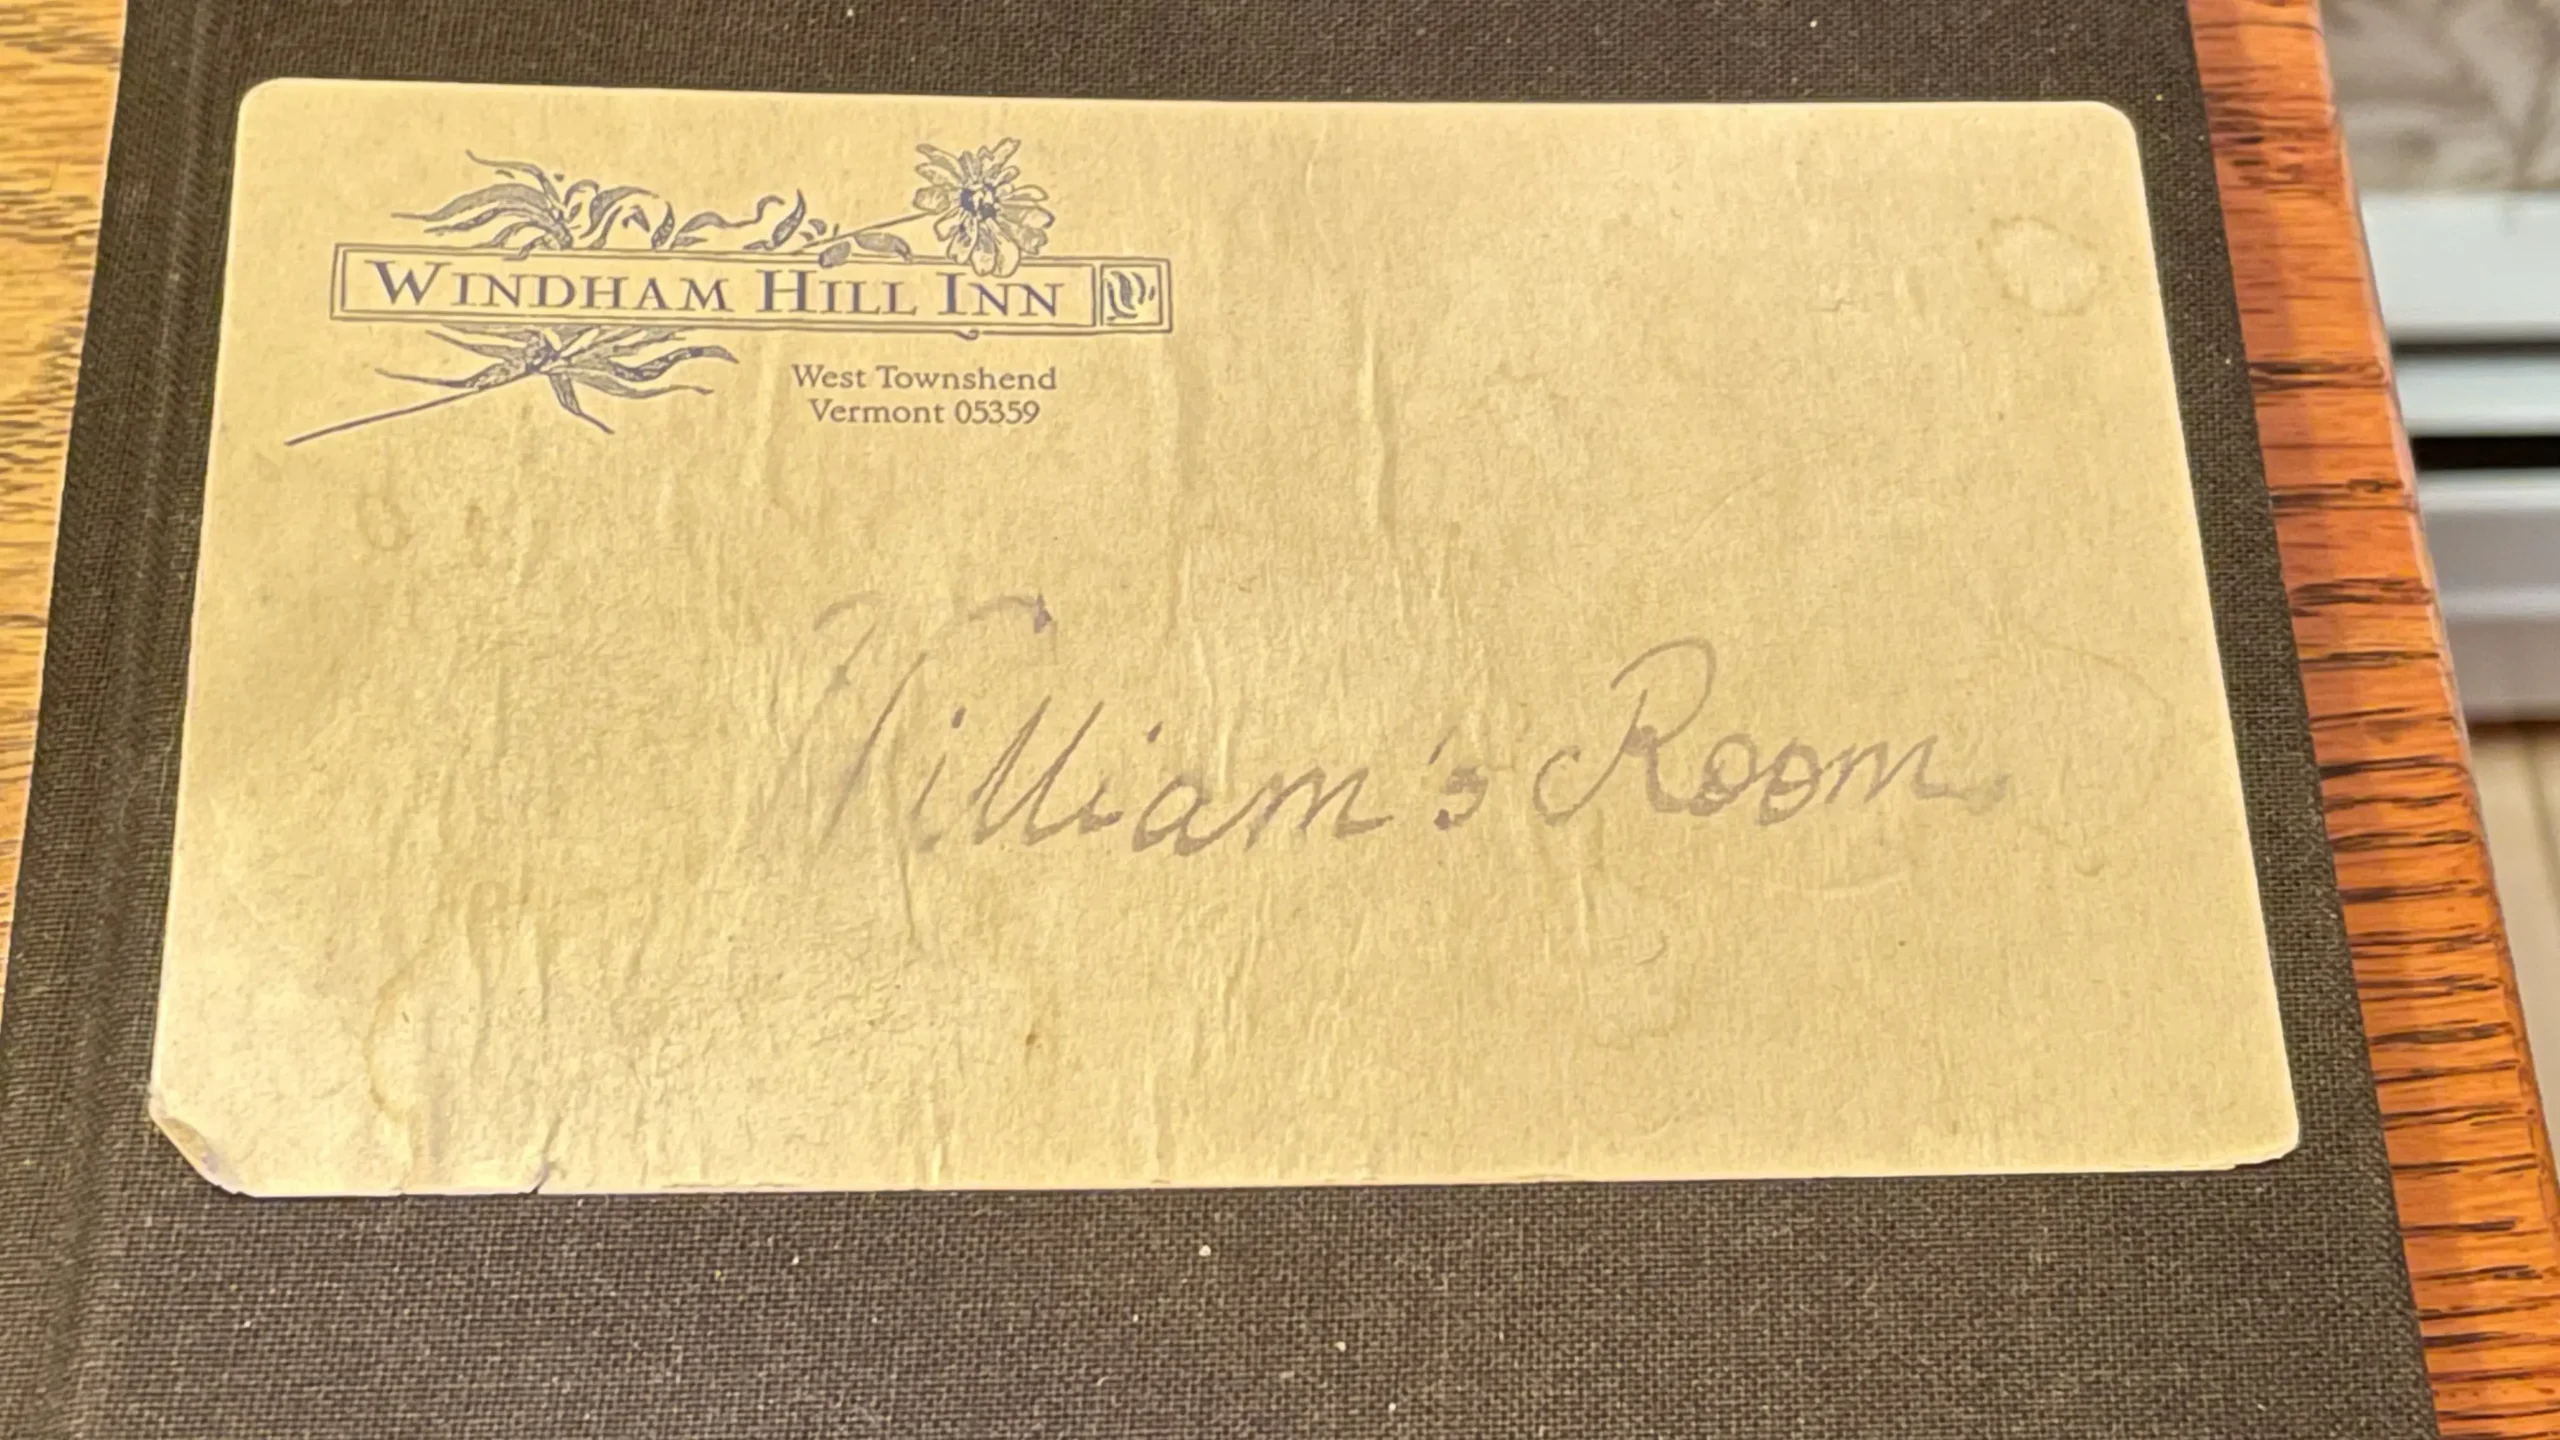 WINDHAM HILL INN
West Townshend
Vermont 05359
William's Room